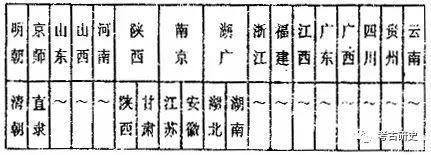 明朝 京师 山东 山西 河南 陕西 南京 湖广 浙江 福建 江西 广东 广西 四川 贵州 云南
清朝 直隶 ~ ~ ~ 陕西 甘肃 江苏 安徽 湖北 湖南 ~ ~ ~ ~ ~ ~ ~ ~
考古研史